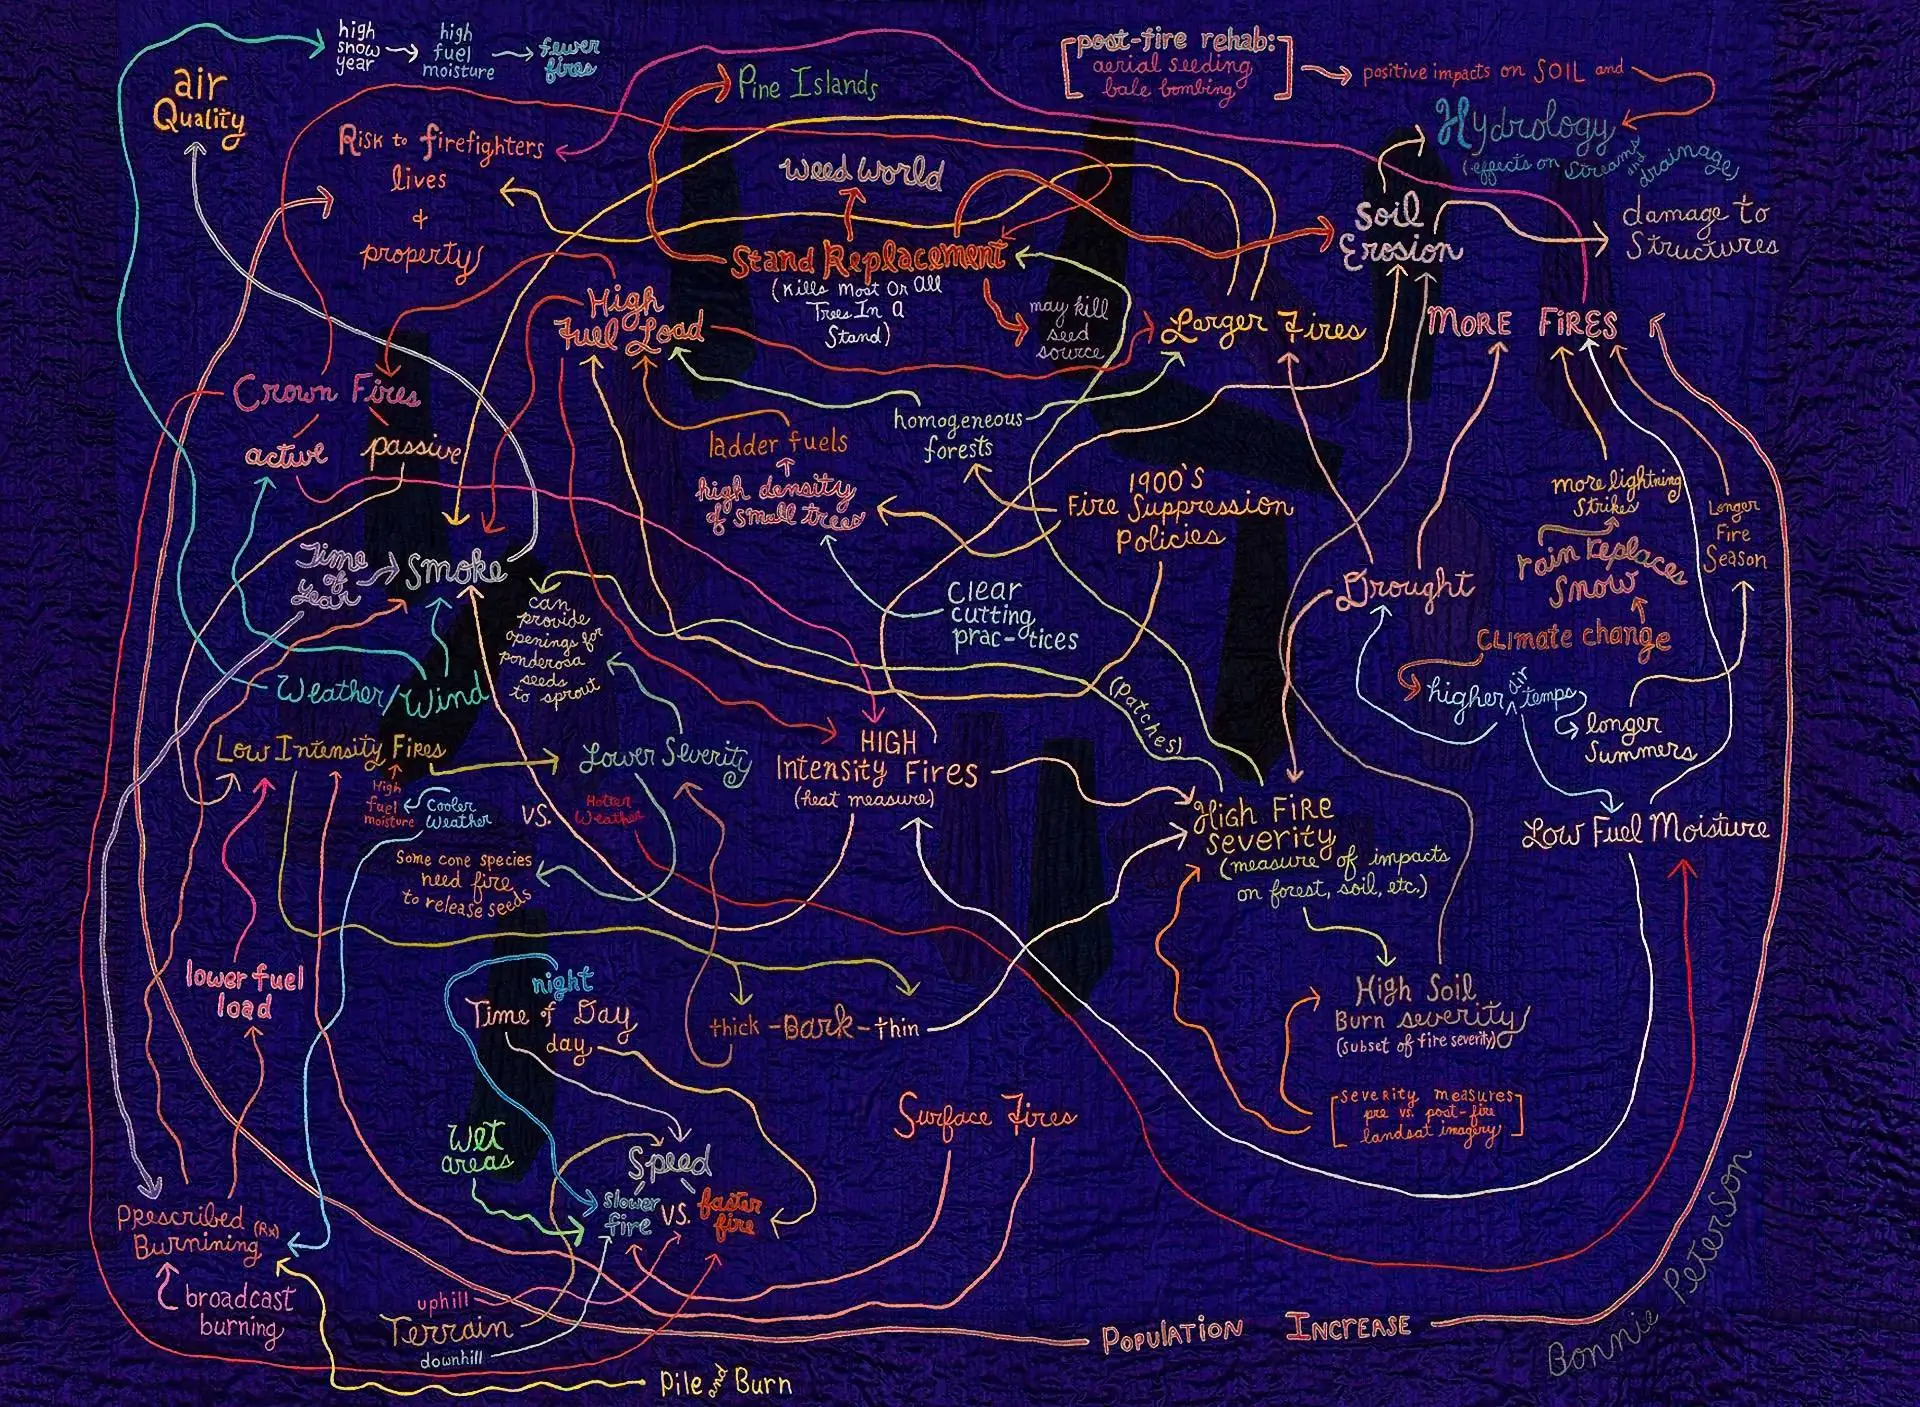 high
snow
year
high
fuel
moisture
fewer
fires
air
Quality
Risk to firefighters
lives
+
property
Pine Islands
[post-fire rehab:
aerial seeding
bale bombing]
positive impacts on SOIL and
Hydrology
(effects on streams and drainage)
Weed World
Stand Replacement
(Kills Most Or All
Trees In A
Stand)
may kill
seed
source
Soil
Erosion
damage to
Structures
High
Fuel Load
Larger Fires
MORE FIRES
Crown Fires
active
passive
ladder fuels
high density
of small trees
homogeneous
forests
1900'S
Fire Suppression
Policies
more lightning
strikes
rain replaces
snow
Climate change
Longer
Fire
Season
Time
of
year
Smoke
can
provide
openings for
ponderosa
seeds
to sprout
Clear
cutting
prac-tices
Drought
higher air temps
longer
Summers
Weather/Wind
(patches)
Low Intensity Fires
High
fuel
moisture
Cooler
Weather
VS.
Hotter
Weather
Lower Severity
HIGH
Intensity Fires
(heat measure)
High FiRe
Severity
(measure of impacts
on forest, soil, etc.)
Low Fuel Moisture
Some cone species
need fire
to release seeds
lower fuel
load
night
Time of Day
day
thick -Bark- thin
High Soil
Burn severity
(subset of fire severity)
[severity measures
pre vs. post-fire
landsat imagery]
Surface Fires
Wet
areas
Speed
slower
fire
VS.
faster
fire
Prescribed (Rx)
Burnining
broadcast
burning
uphill
Terrain
downhill
Pile and Burn
Population Increase
Bonnie Peterson